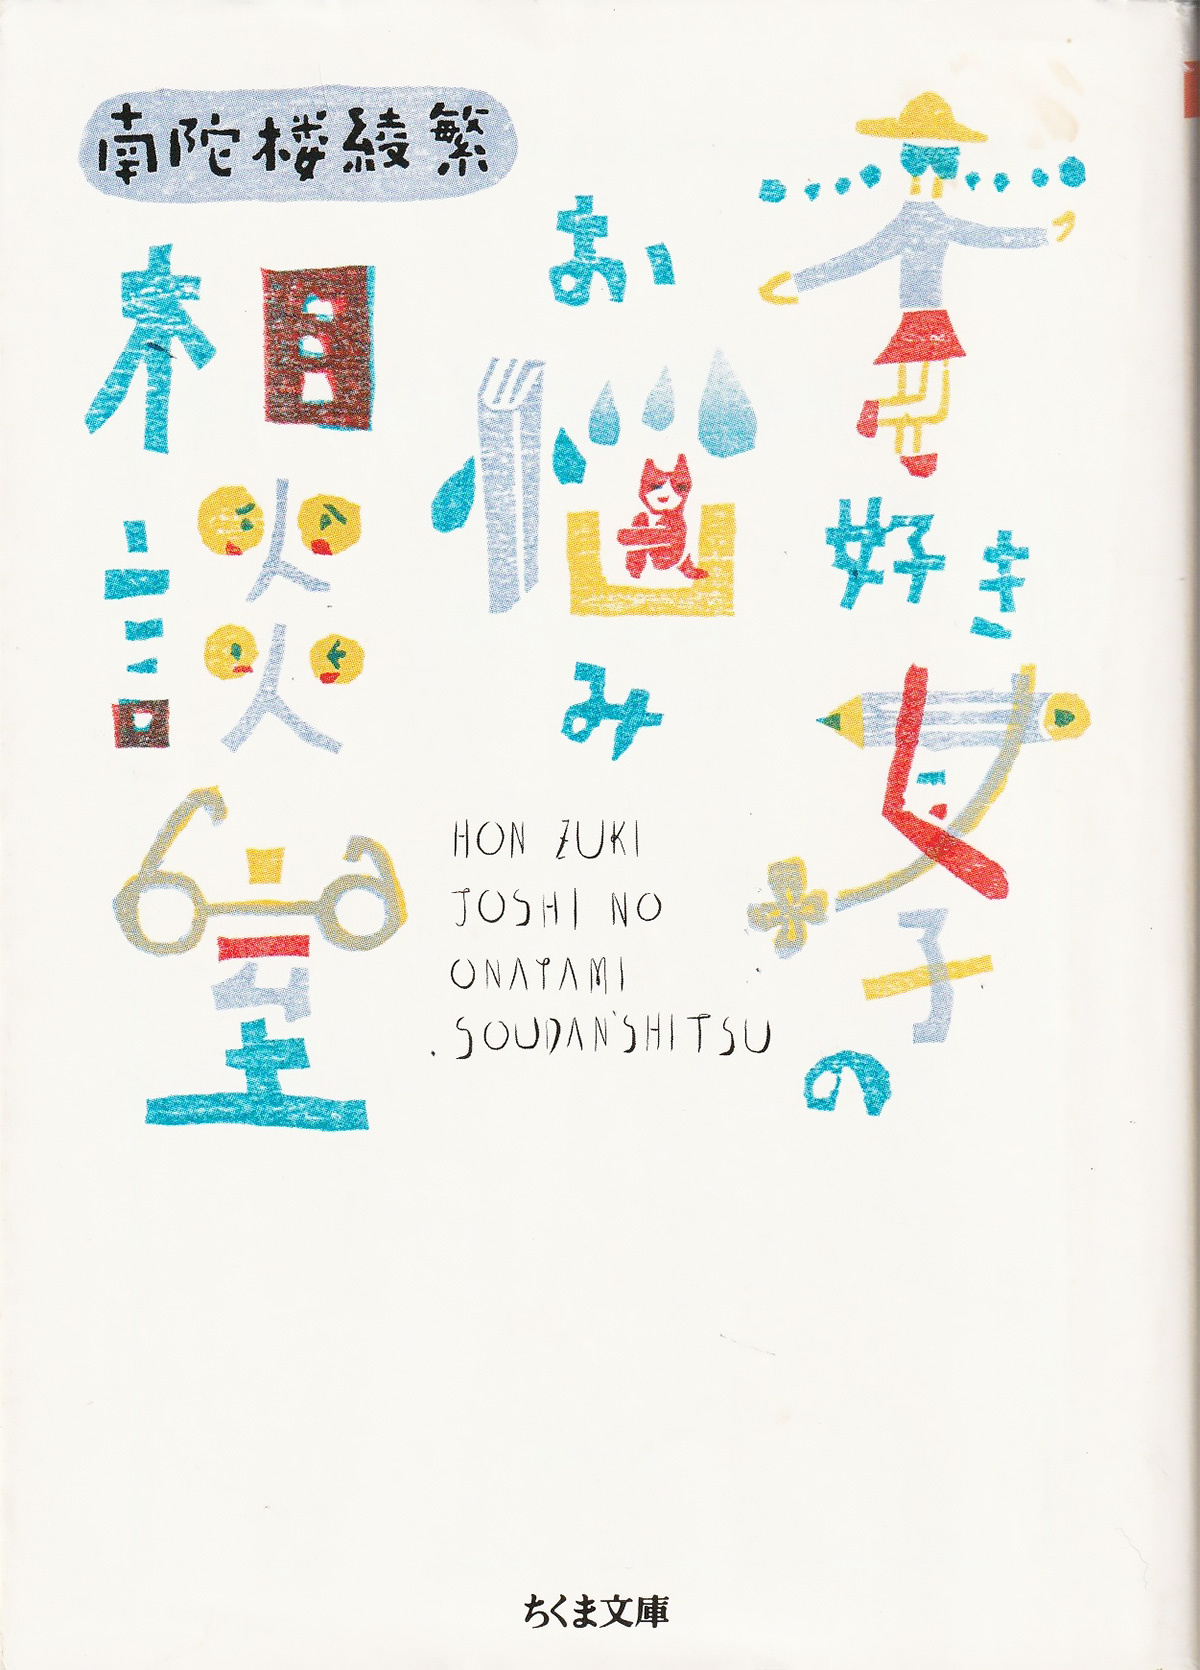 南陀楼綾繁
本好き女子の
お悩み
相談室
HON ZUKI
JOSHI NO
ONAYAMI
SOUDAN'SHITSU
ちくま文庫